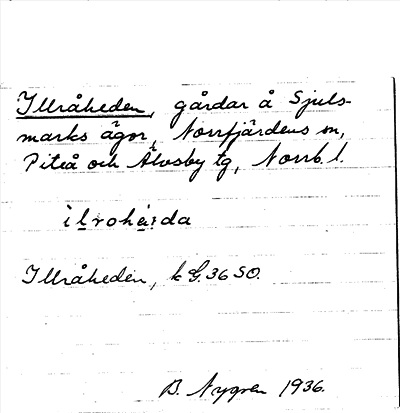 Illråheden, gårdar å Sjuls-
marks ägor, Norrfjärdens sn,
Piteå och Älvsby tg, Norrb. l.
Illråheden, k G. 36 SO.
B. Nygren 1936.